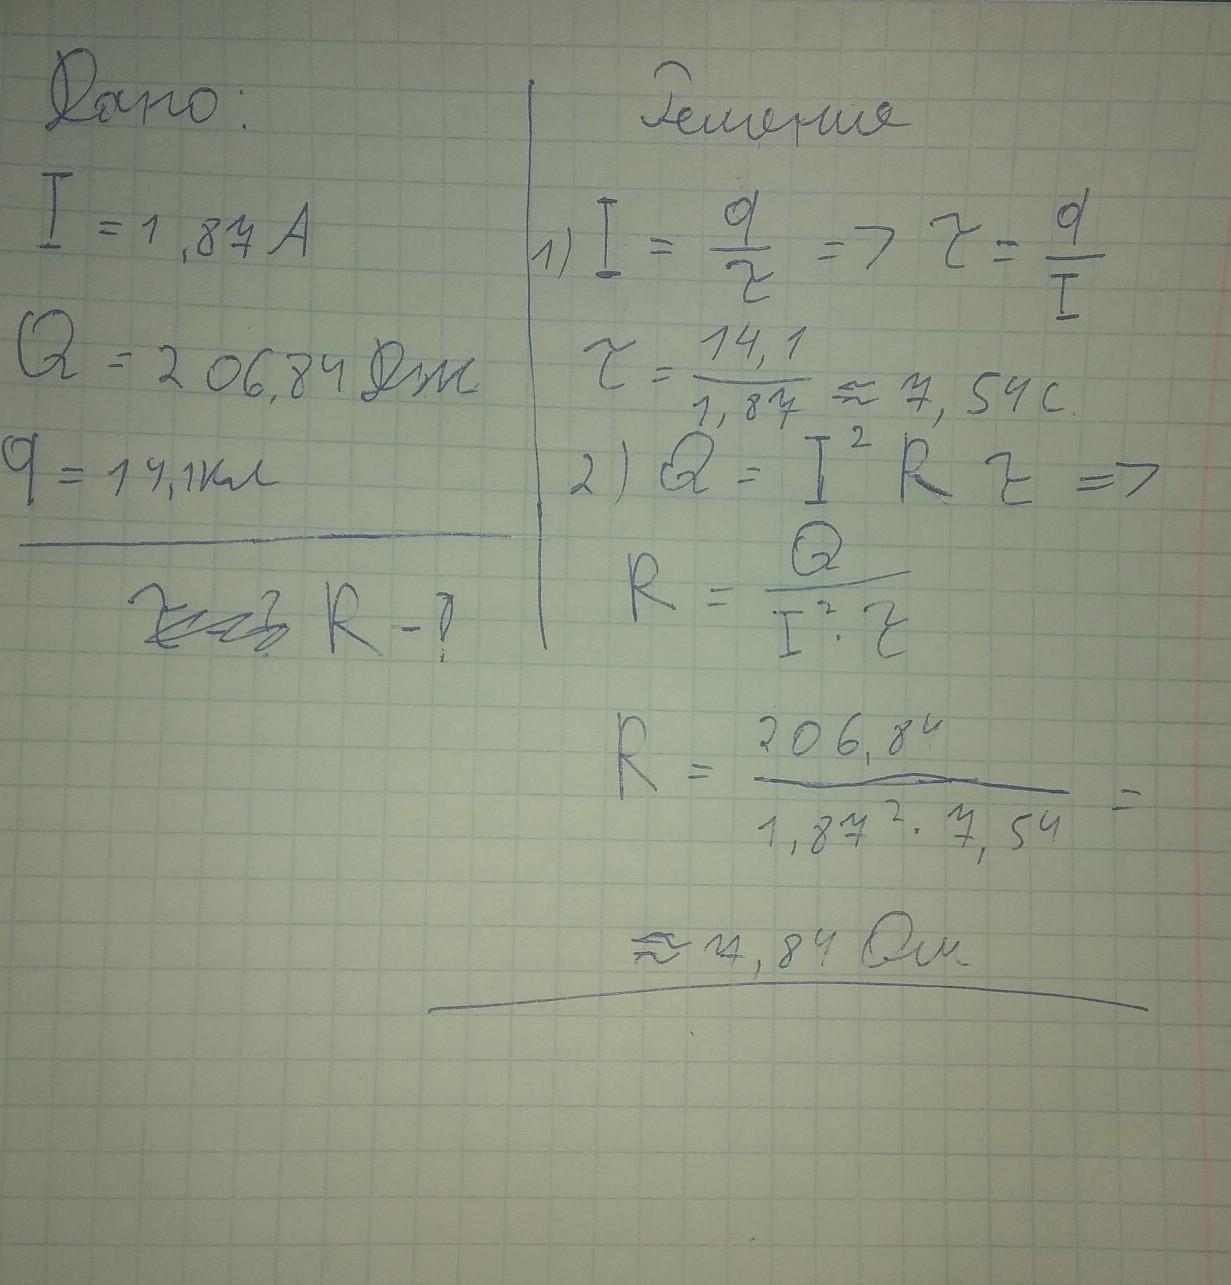 Дано:
I = 1,87 А
Q = 206,84 Дж
q = 14,1 Кл
R - ?
Решения
1) I = q/τ => τ = q/I
τ = 14,1/1,87 ≈ 7,54 с.
2) Q = I² R τ =>
R = Q/I²·τ
R = 206,84/1,87²·7,54 =
≈ 7,84 Ом